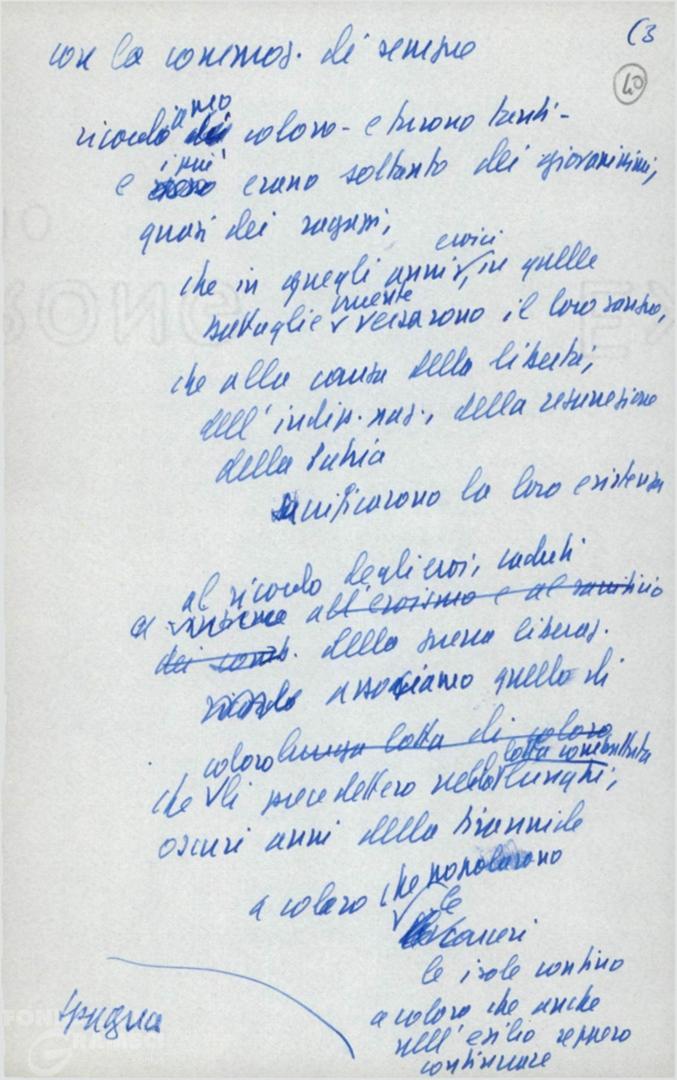 (3
40
con la commos. di sempre
ricordiamo coloro - e furono tanti -
e i più erano soltanto dei giovanissimi,
quasi dei ragazzi,
che in quegli anni eroici, in quelle
battaglie cruente versarono il loro sangue,
che alla causa della libertà,
dell'indip. naz., della resurrezione
della Patria
sacrificarono la loro esistenza
al ricordo degli eroi, caduti
e insieme all'eroismo e al sacrificio
dei comb. della guerra liberaz.
ricordo associamo quello di
coloro lunga lotta di coloro
che li precedettero nella lotta combattuta lunghi,
oscuri anni della tirannide
a coloro che popolarono
le carceri
le isole confino
a coloro che anche
nell'esilio seppero
continuare
Spagna